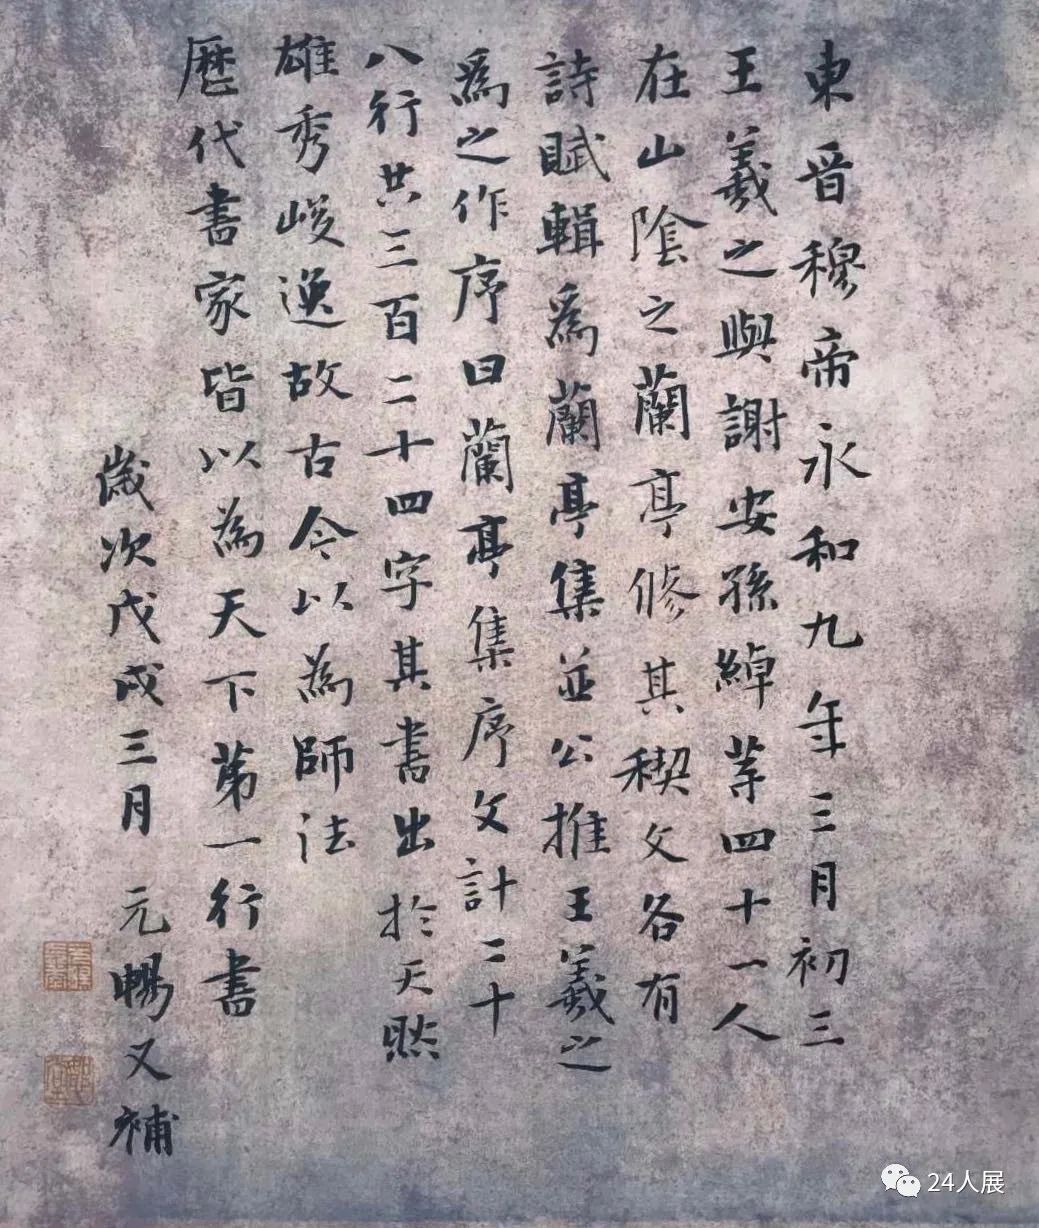 東晉穆帝永和九年三月初三
王羲之與謝安孫綽等四十一人
在山陰之蘭亭修其禊文各有
詩賦輯為蘭亭集並公推王羲之
為之作序曰蘭亭集序文計二十
八行共三百二十四字其書出於天然
雄秀峻逸故古今以為師法
歷代書家皆以為天下第一行書
歲次戊戌三月 元暢又補
24人展